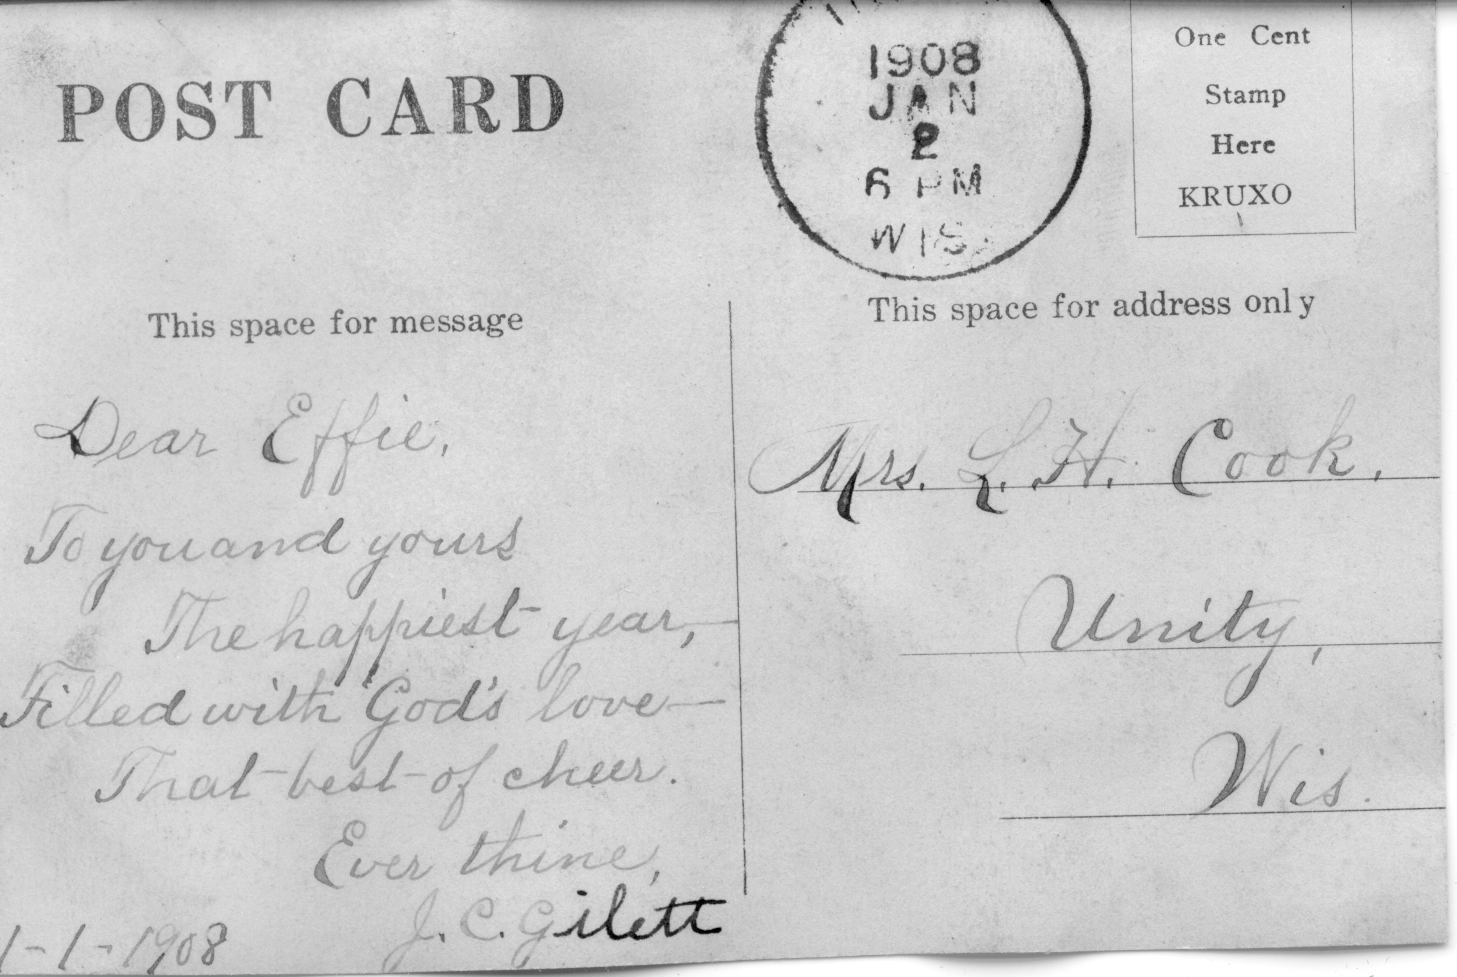 POST CARD
1908
JAN
2
6 PM
WIS
One Cent
Stamp
Here
KRUXO
This space for message
Dear Effie,
To you and yours
The happiest year,—
Filled with God's love—
That best of cheer.
Ever thine,
J. C. Gilett
1-1-1908
This space for address only
Mrs. L. H. Cook,
Unity,
Wis.